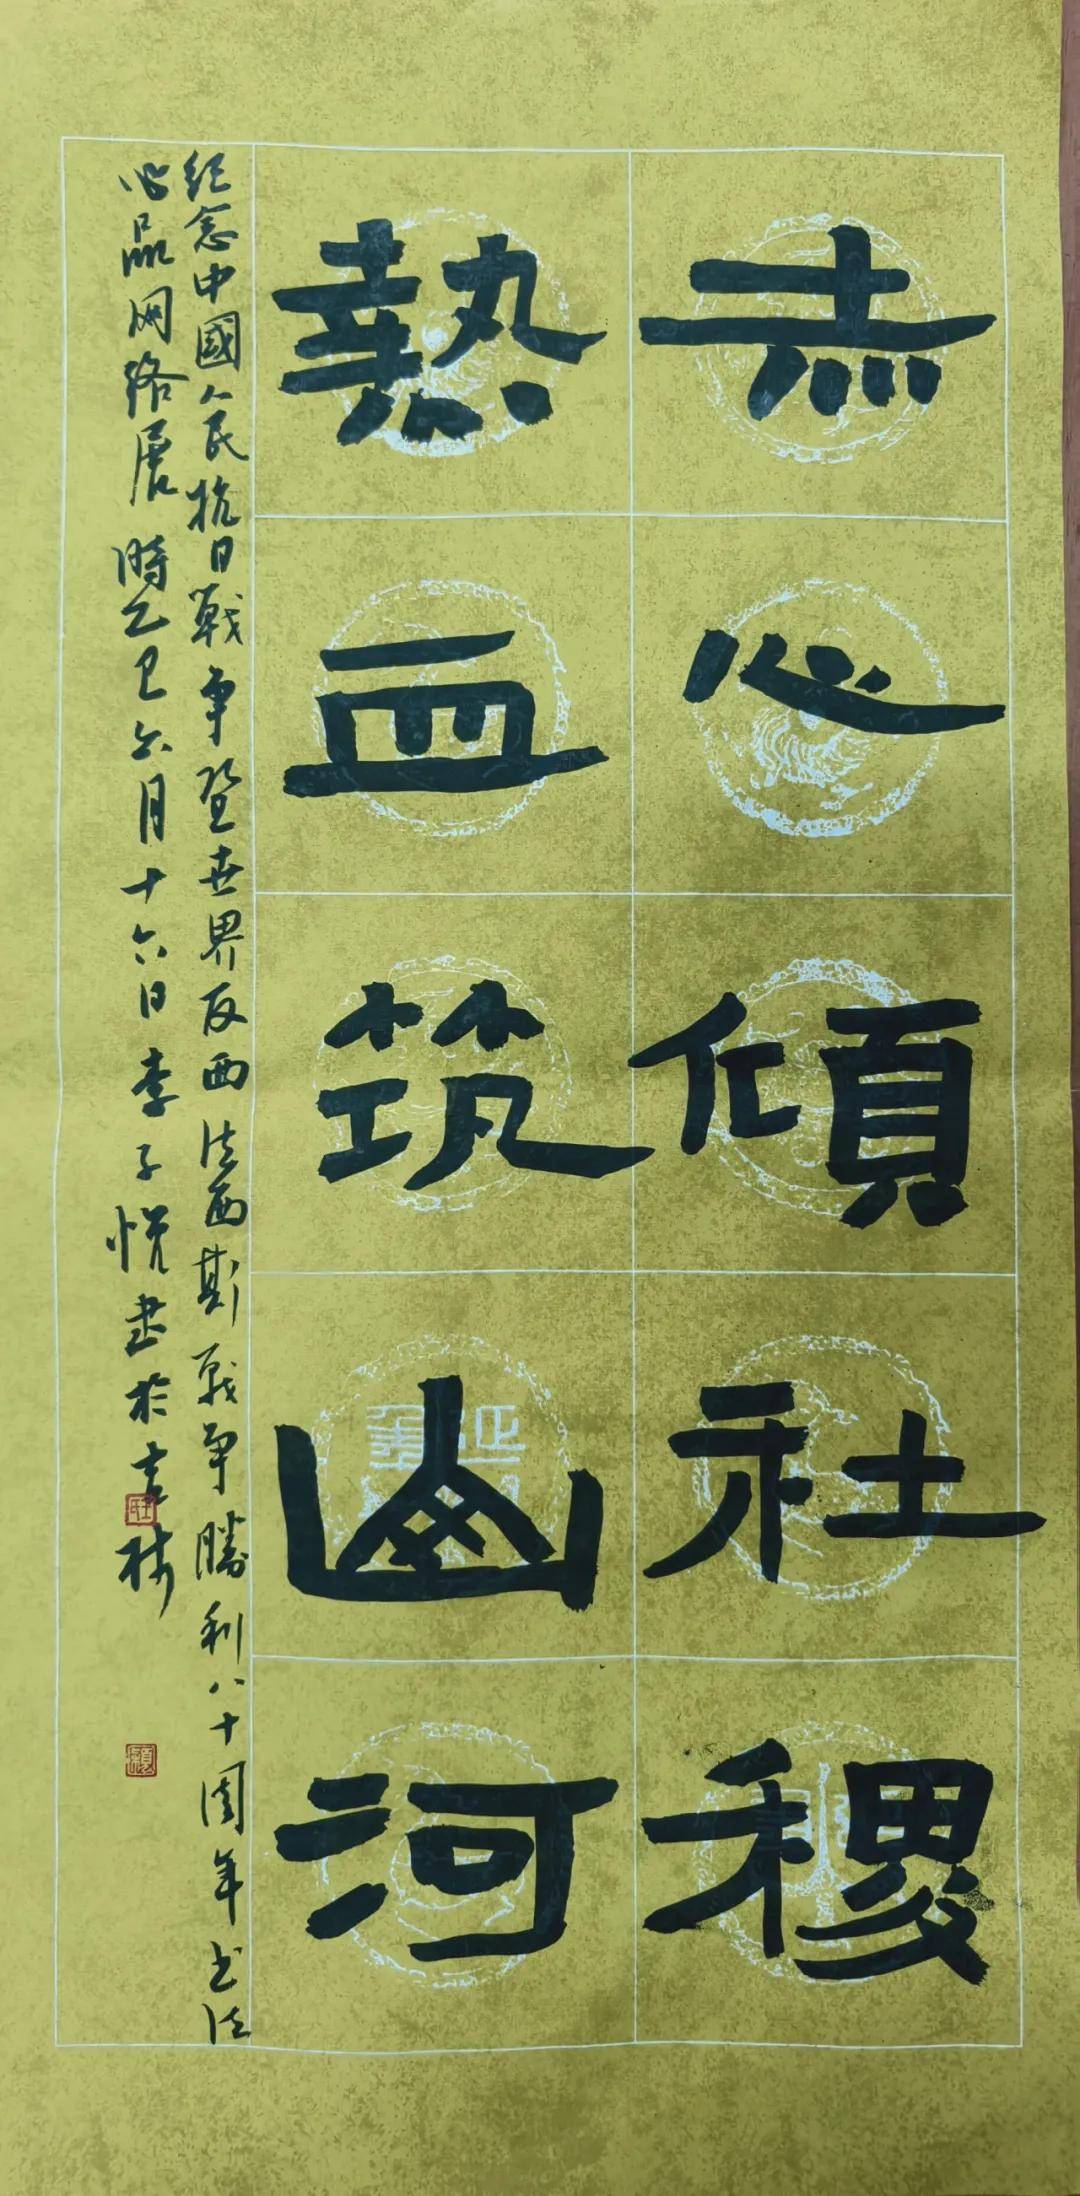 赤心傾社稷
熱血筑山河
纪念中國人民抗日戰争暨世界反西法西斯戰争勝利八十周年书法
作品网络展 時乙巳六月十六日李子悦書於